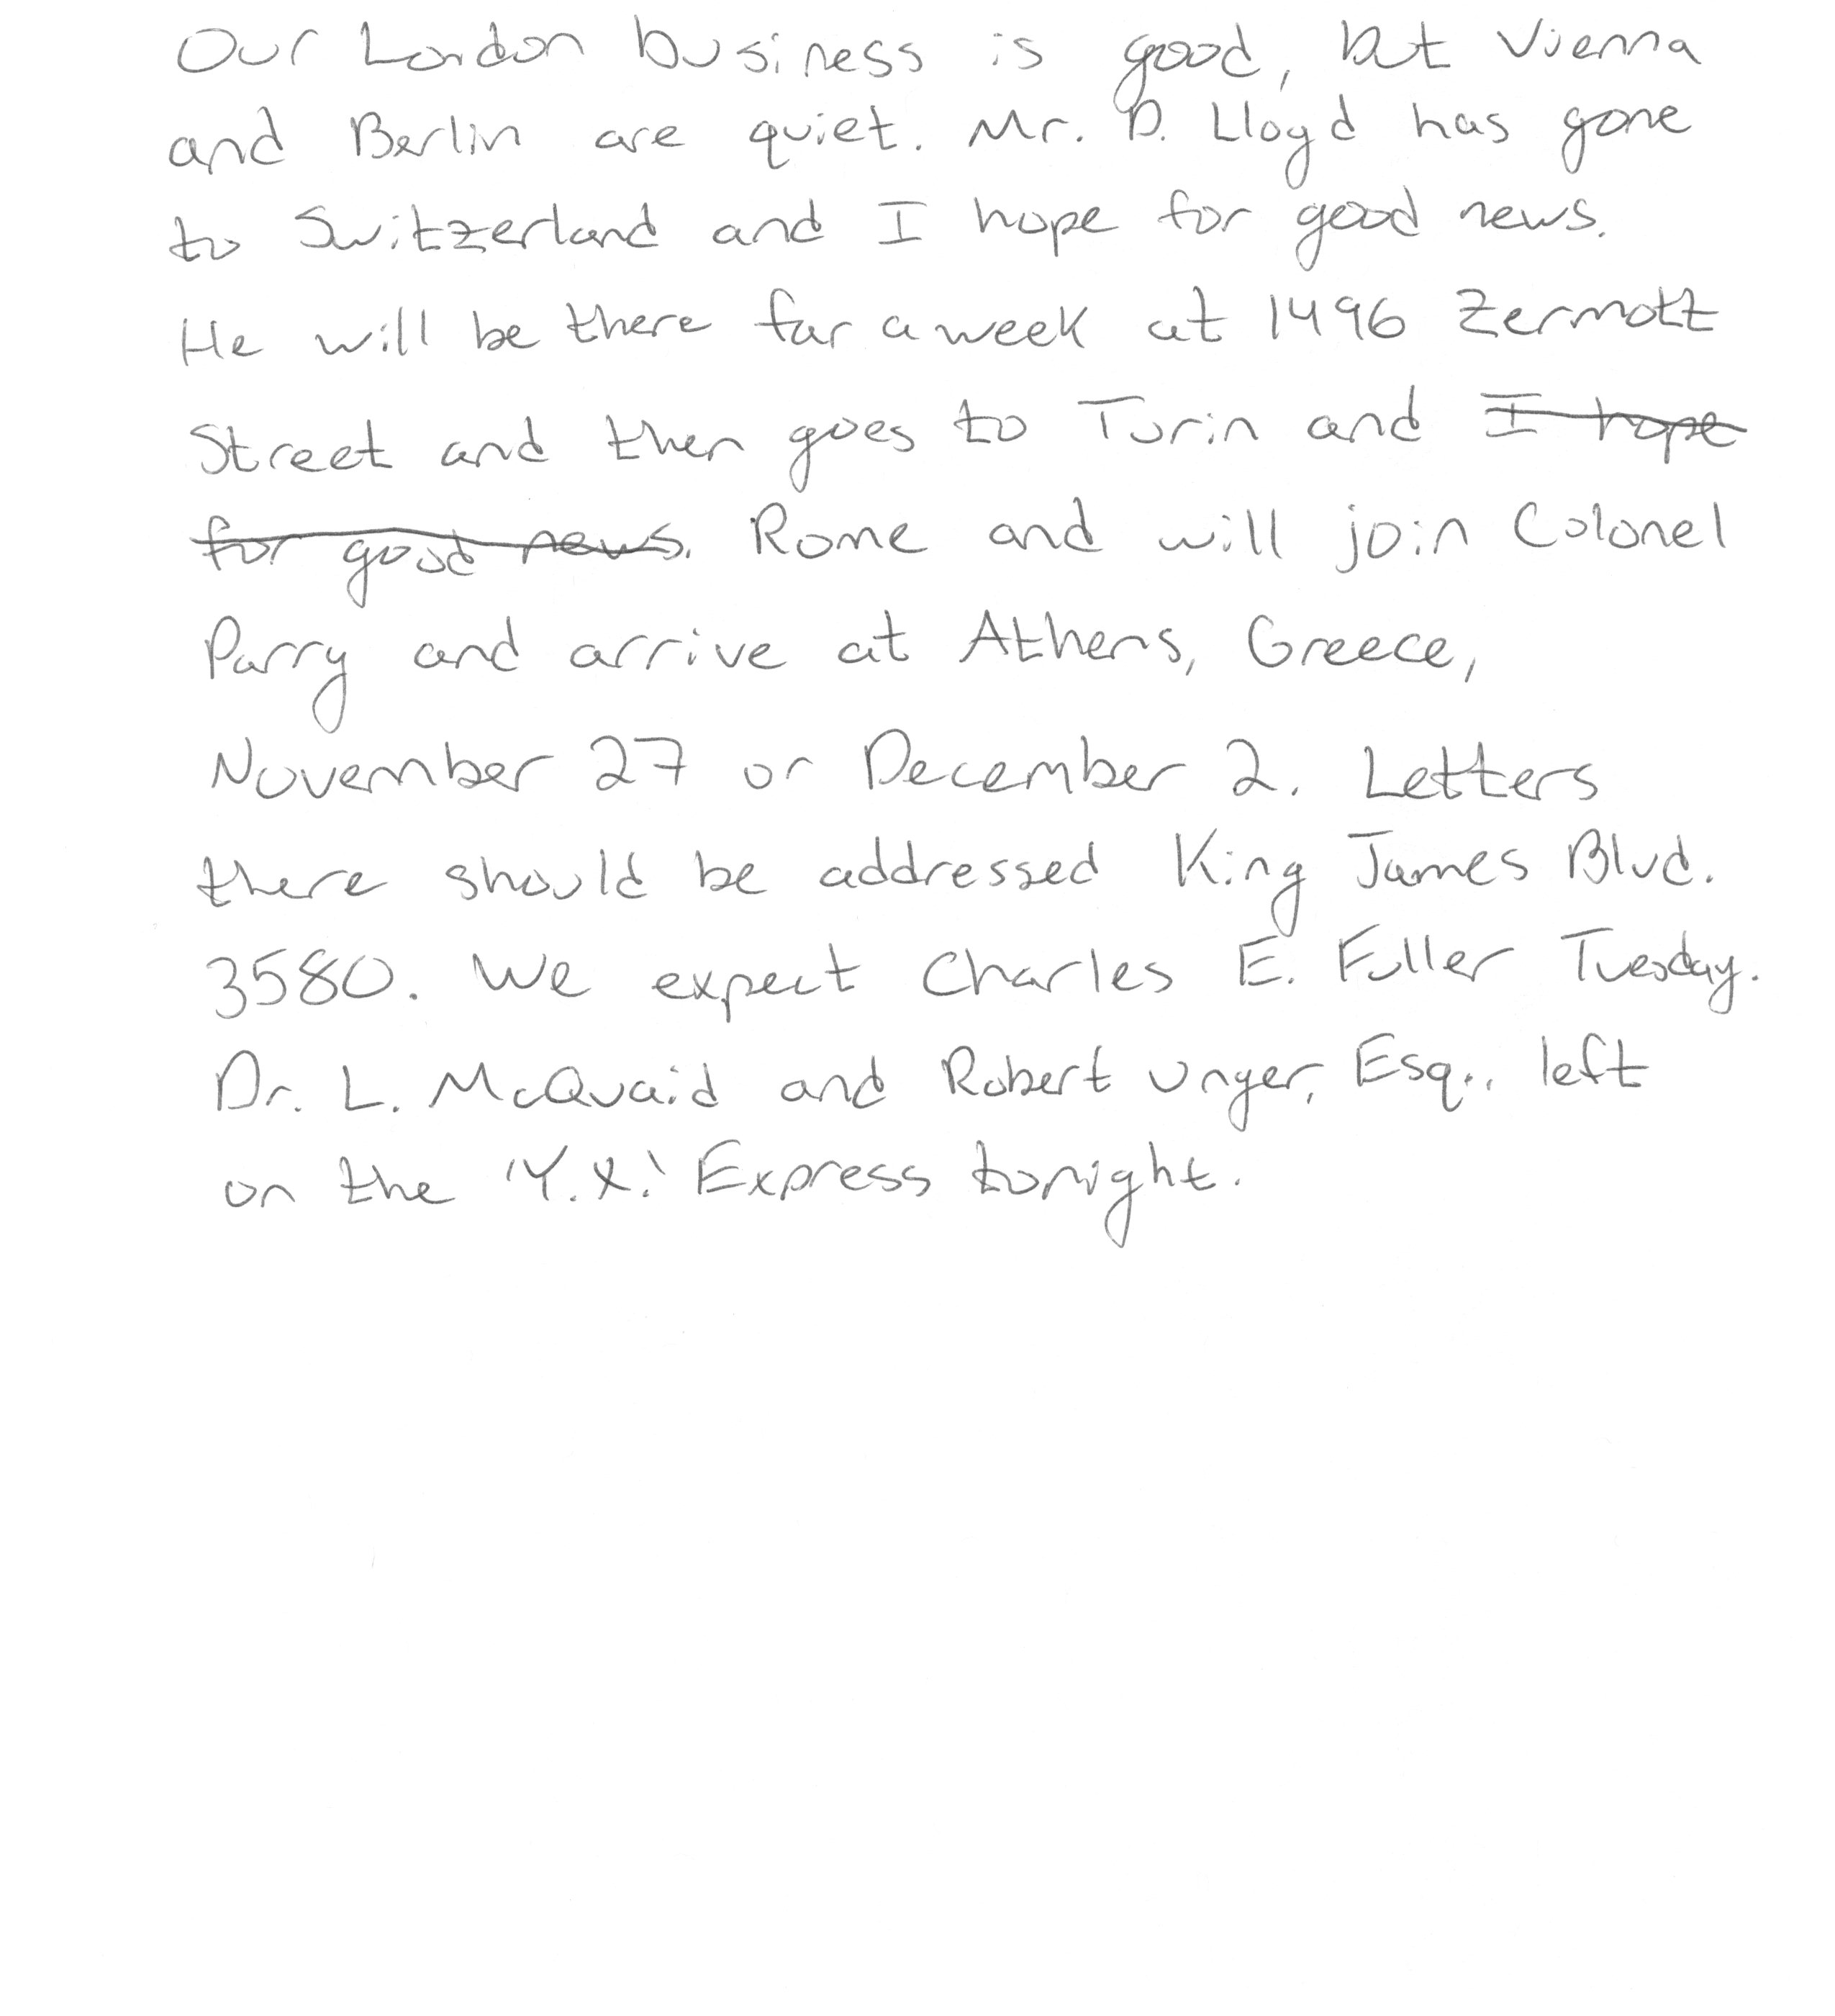 Our London business is good, but Vienna
and Berlin are quiet. Mr. D. Lloyd has gone
to Switzerland and I hope for good news.
He will be there for a week at 1496 Zermott
Street and then goes to Turin and I hope
for good news. Rome and will join Colonel
Parry and arrive at Athens, Greece,
November 27 or December 2. Letters
there should be addressed King James Blvd.
3580. We expect Charles E. Fuller Tuesday.
Dr. L. McQuaid and Robert Unger, Esq., left
on the 'Y.X.' Express tonight.